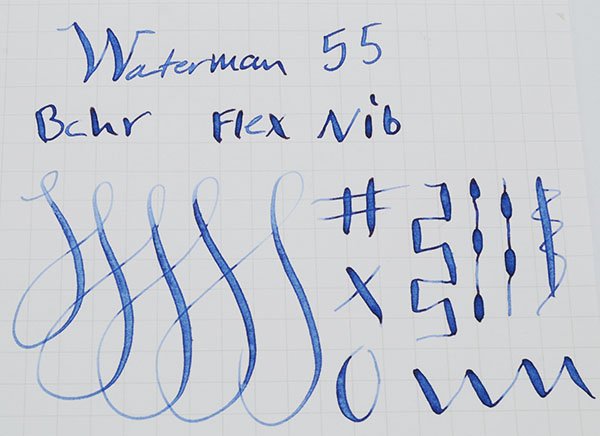 Waterman 55
Bchr Flex Nib